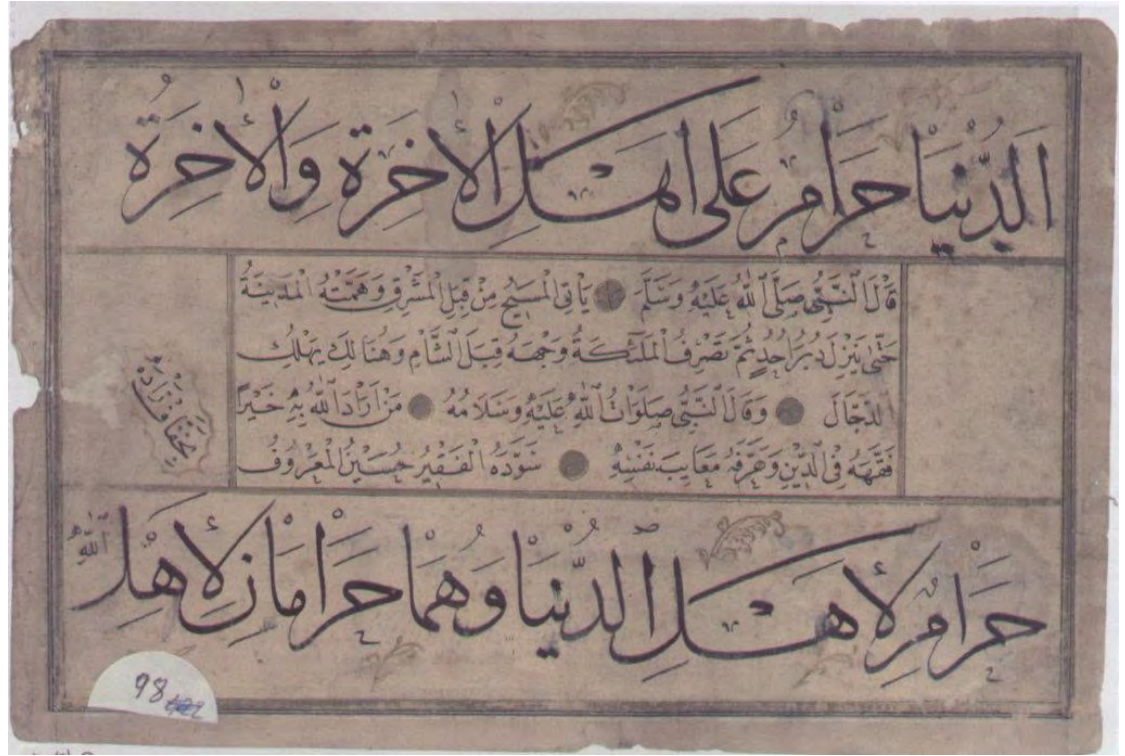 اَلدُّنْيَا حَرَامٌ عَلَى اَهْلِ الْاٰخِرَةِ وَالْاٰخِرَةُ
قَالَ النَّبِىُّ صَلَّى اللّٰهُ عَلَيْهِ وَسَلَّمَ يَأْتِى الْمَسِيحُ مِنْ قِبَلِ الْمَشْرِقِ وَهِمَّتُهُ الْمَدِينَةُ
حَتّٰى يَنْزِلَ دُبُرَ اُحُدٍ ثُمَّ تَصْرِفُ الْمَلٰٓئِكَةُ وَجْهَهُ قِبَلَ الشَّامِ وَهُنَالِكَ يَهْلِكُ
الدَّجَّالَ وَقَالَ النَّبِىُّ صَلَوَاتُ اللّٰهِ عَلَيْهِ وَسَلَامُهُ مَنْ اَرَادَ اللّٰهُ بِهِ خَيْرًا
فَقَّهَهُ فِى الدِّينِ وَعَرَّفَهُ مَعَايِبَ نَفْسِهِ سَوَّدَهُ الْفَقِيرُ حُسَيْنُ الْمَعْرُوفُ
بخفافزاده
حَرَامٌ لِاَهْلِ الدُّنْيَا وَهُمَا حَرَامَانِ لِاَهْلِ اللّٰهِ
98